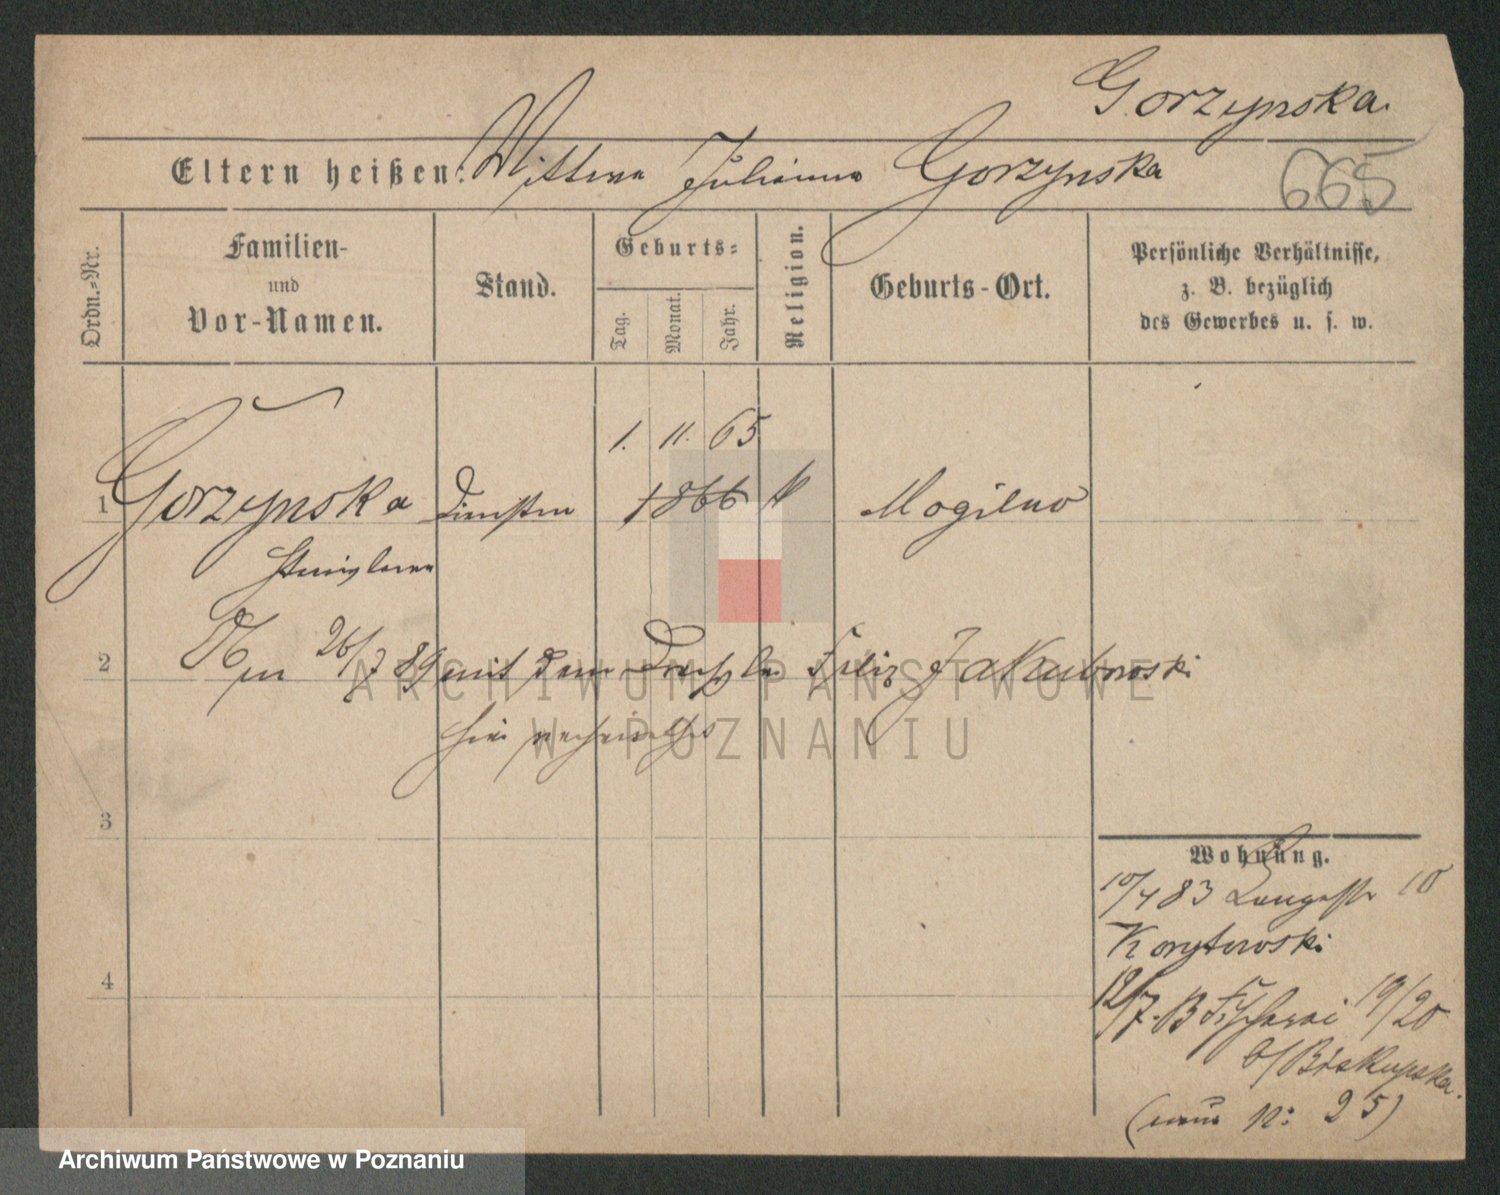 Gorzynska.
Eltern heißen: Wittwe Julianna Gorzynska
665
Ordn.=Nr.
Familien-
und
Vor-Namen.
Stand.
Geburts=
Tag.
Monat.
Jahr.
Religion.
Geburts-Ort.
Persönliche Verhältnisse,
z. B. bezüglich
des Gewerbes u. s. w.
1. 11. 65
1 Gorzynska 1866 k Mogilno
Stanislawa
2 26/7 89 mit dem Felix Jakubowski
hier
3
Wohnung.
10/4 83 Langestr 10
Korytowski
4
12/7. B Fischerei 19/20
b/Biskupska.
(neue N: 25)
ARCHIWUM PAŃSTWOWE
W POZNANIU
Archiwum Państwowe w Poznaniu